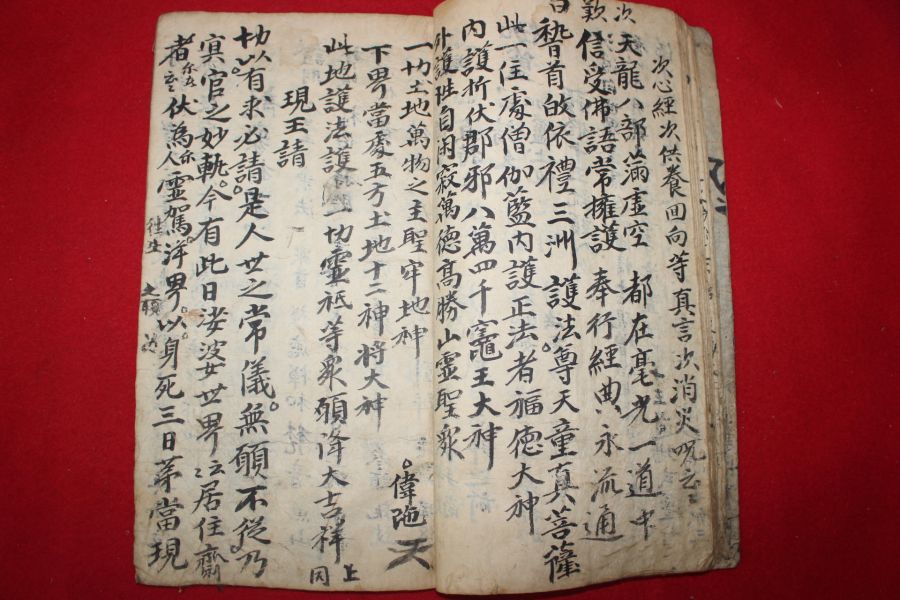 次心經次供養回向等眞言次消災呪云云
次 天龍八部滿虛空 都在毫光一道中
歎 信受佛語常擁護 奉行經典永流通
白 稽首皈依禮三洲 護法尊天童眞菩薩
此一住處僧伽藍內護正法者福德大神
內護折伏郡邪八萬四千竈王大神
外護 自閑寂萬德高勝山靈聖衆
一切土地萬物之主聖牢地神 偉䧅天
下界當處五方土地十二神將大神
此地護法護 一切靈祇等衆願降大吉祥 上同
現王請
切以有求必請是人世之常儀無願不從乃
冥官之妙軌今有此日娑婆世界云居住齋
者 伏爲 人 靈駕 洋界以身死三日第當現
往生 之願